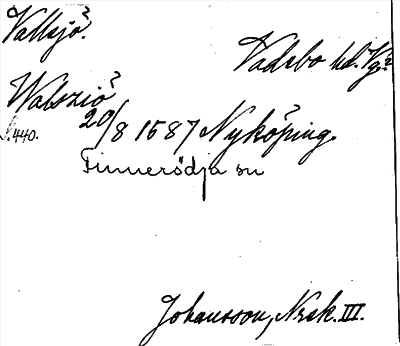 Vallsjö?
Vadsbo hd. Vg.?
Walszió?
20/8 1587 Nyköping.
S. 440.
Finnerödja sn
Johansson, Nrsk. III.